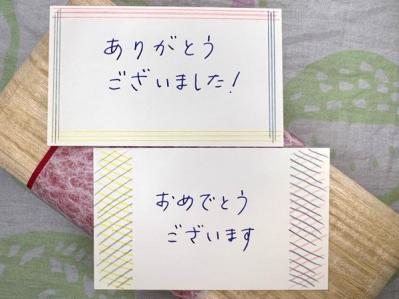 ありがとう
ございました!
おめでとう
ございます